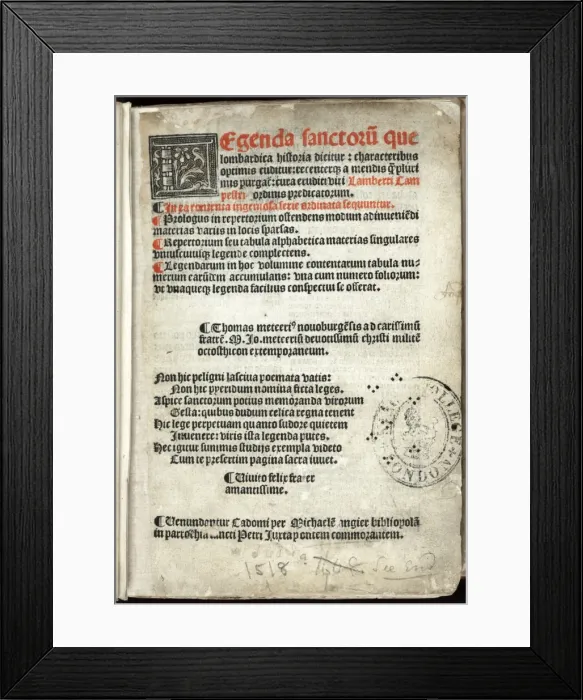 LEgenda sanctorũ que
lombardica historia dicitur : characteribus
optimis euditur: recenterqꝫ a mendis q̃ pluri
mis purgat̃: cura eruditi viri Lamberti Cam
pestri ordinis predicatorum.
¶ In ea contenta ingeniosa serie ordinata sequuntur.
¶ Prologus in repertorium ostendens modum adinueniẽdi
materias variis in locis sparsas.
¶ Repertorium seu tabula alphabetica materias singulares
vniuscuiusqꝫ legende complectens.
¶ Legendarum in hoc volumine contentarum tabula nu-
merum earũdem accumulans: vna cum numero foliorum:
vt vnaqueqꝫ legenda facilius conspectui se offerat.
¶ Thomas metcerꝰ nouoburgẽsis ad carissimũ
fratrẽ .M. Jo. metceriũ deuotissimũ christi militẽ
octosthicon extemporaneum.
Non hic peligni lasciua poemata vatis:
Non hic pyeridum nomina ficta leges.
Aspice sanctorum potius memorãda virorum
Gesta: quibus dudum celica regna tenent
Hic lege perpetuam quanto sudore quietem
Inuenere: viris ista legenda putes.
Hec igitur summis studijs exempla videto
Cum te presertim pagina sacra iuuet.
¶ Viuito felix frater
amantissime.
¶ Venundantur Cadomi per Michaelẽ angier bibliopolã
in parrochia sancti Petri Juxta pontem commorantem.
1518 See End
COLLEGE LONDON